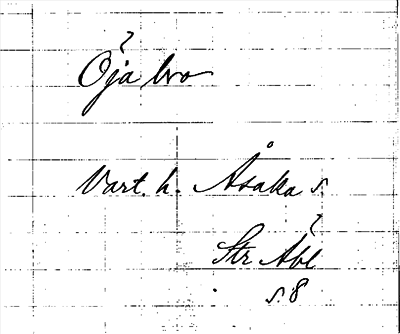 ?
Öja bro
Vart. h. Åsaka s.
Str Åbl
s. 8